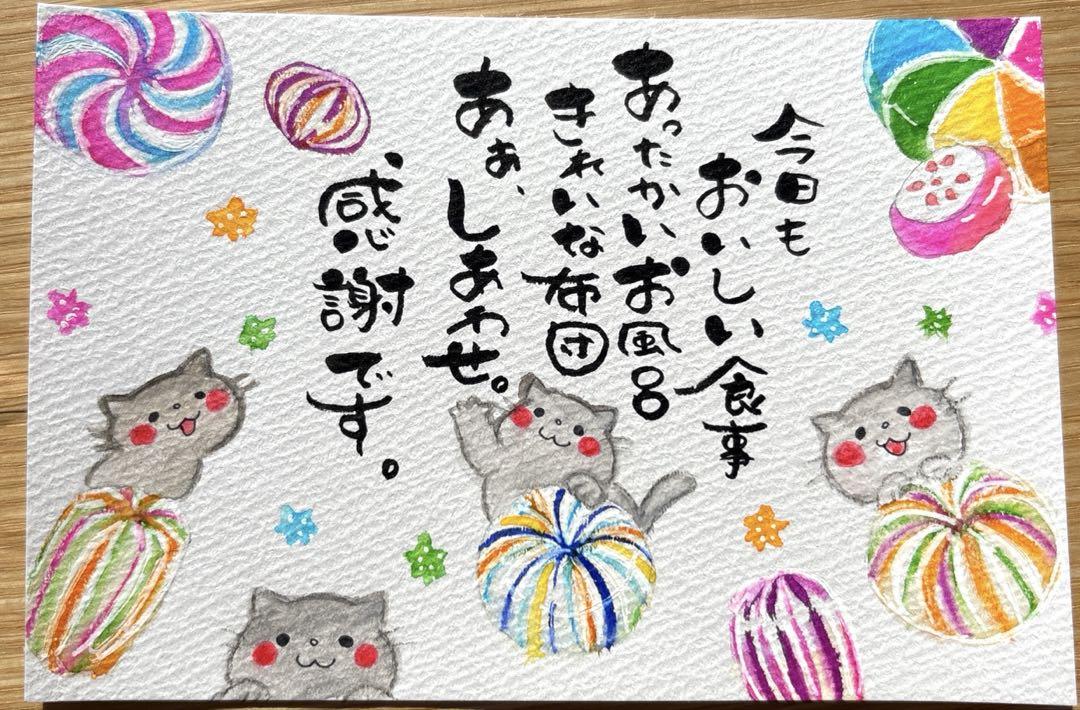 今日も
おいしい食事
あったかいお風呂
きれいな布団
あぁ、しあわせ。
感謝です。